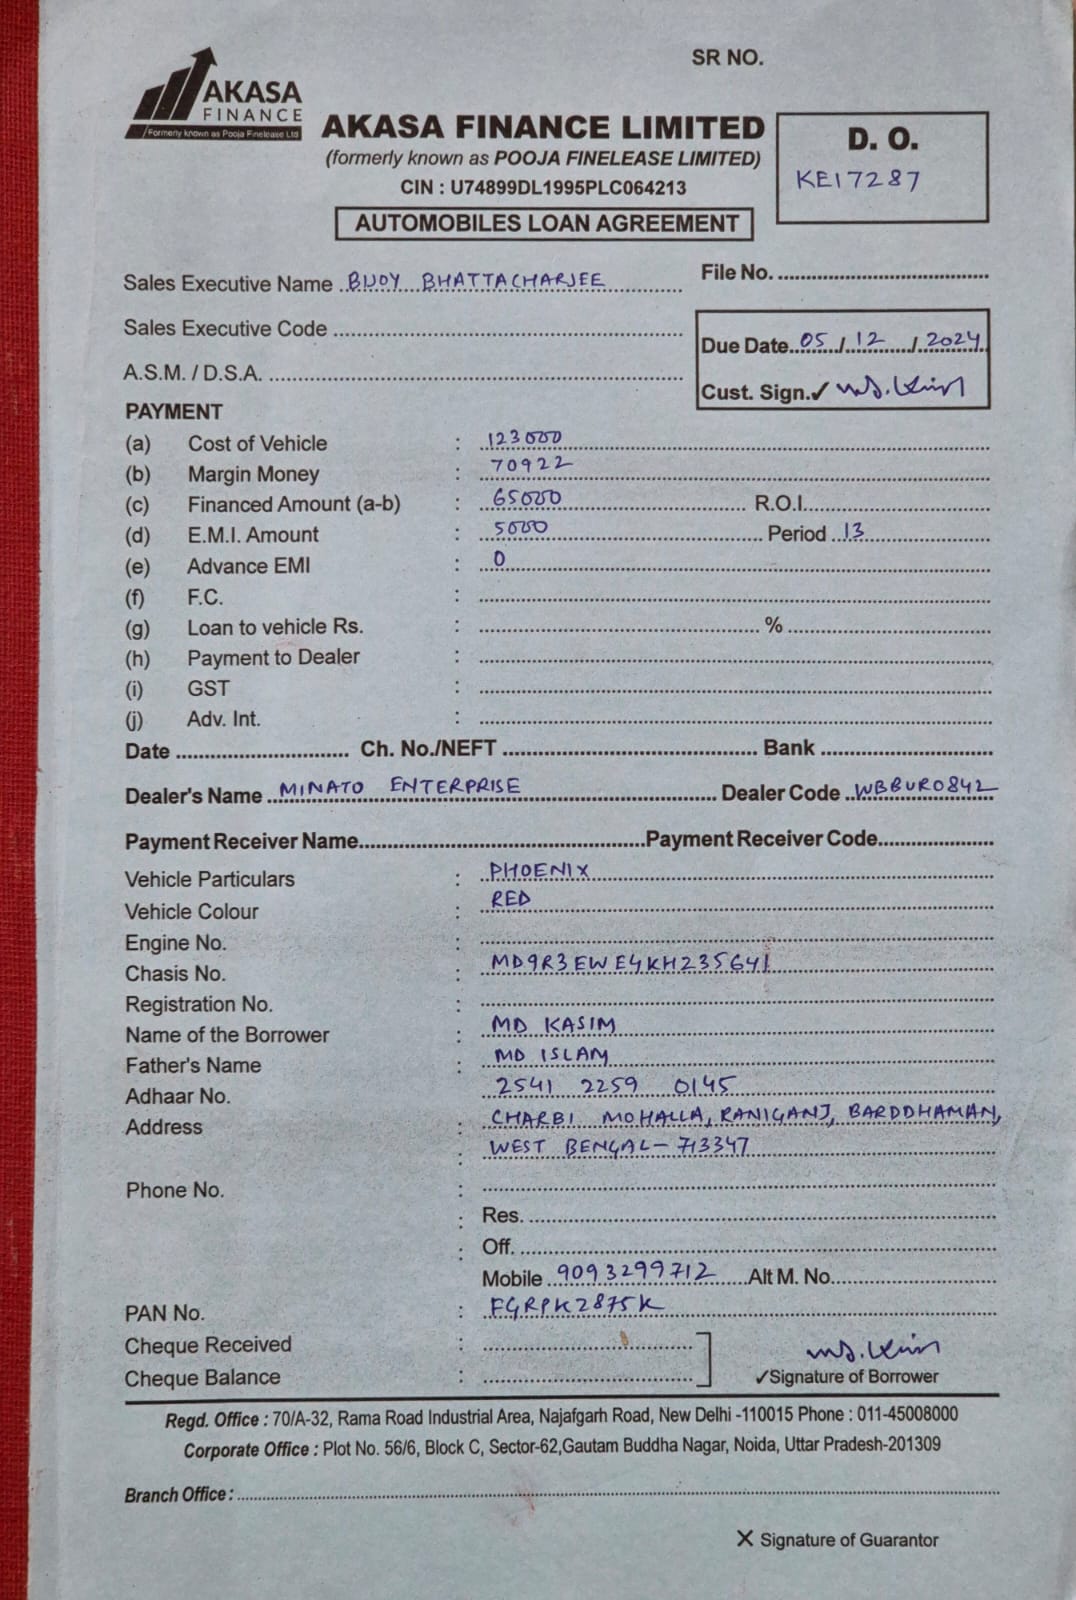 SR NO.
AKASA
FINANCE
Formerly known as Pooja Finelease Ltd
AKASA FINANCE LIMITED
(formerly known as POOJA FINELEASE LIMITED)
CIN : U74899DL1995PLC064213
AUTOMOBILES LOAN AGREEMENT
D. O.
KE17287
Sales Executive Name BIJOY BHATTACHARJEE
File No.
Sales Executive Code
Due Date 05 / 12 / 2024
A.S.M. / D.S.A.
Cust. Sign.✓
PAYMENT
(a) Cost of Vehicle : 123000
(b) Margin Money : 70922
(c) Financed Amount (a-b) : 65000 R.O.I.
(d) E.M.I. Amount : 5000 Period 13
(e) Advance EMI : 0
(f) F.C. :
(g) Loan to vehicle Rs. : %
(h) Payment to Dealer :
(i) GST :
(j) Adv. Int. :
Date Ch. No./NEFT Bank
Dealer's Name MINATO ENTERPRISE Dealer Code WBBUR0842
Payment Receiver Name Payment Receiver Code
Vehicle Particulars : PHOENIX
Vehicle Colour : RED
Engine No. :
Chasis No. : MD9R3EWE4KH235641
Registration No. :
Name of the Borrower : MD KASIM
Father's Name : MD ISLAM
Adhaar No. : 2541 2259 0145
Address : CHARBI MOHALLA, RANIGANJ, BARDDHAMAN,
: WEST BENGAL - 713347
Phone No. :
: Res.
: Off.
Mobile 9093299712 Alt M. No.
PAN No. : FGRPK2875K
Cheque Received :
Cheque Balance :
✓Signature of Borrower
Regd. Office : 70/A-32, Rama Road Industrial Area, Najafgarh Road, New Delhi -110015 Phone : 011-45008000
Corporate Office : Plot No. 56/6, Block C, Sector-62,Gautam Buddha Nagar, Noida, Uttar Pradesh-201309
Branch Office :
X Signature of Guarantor